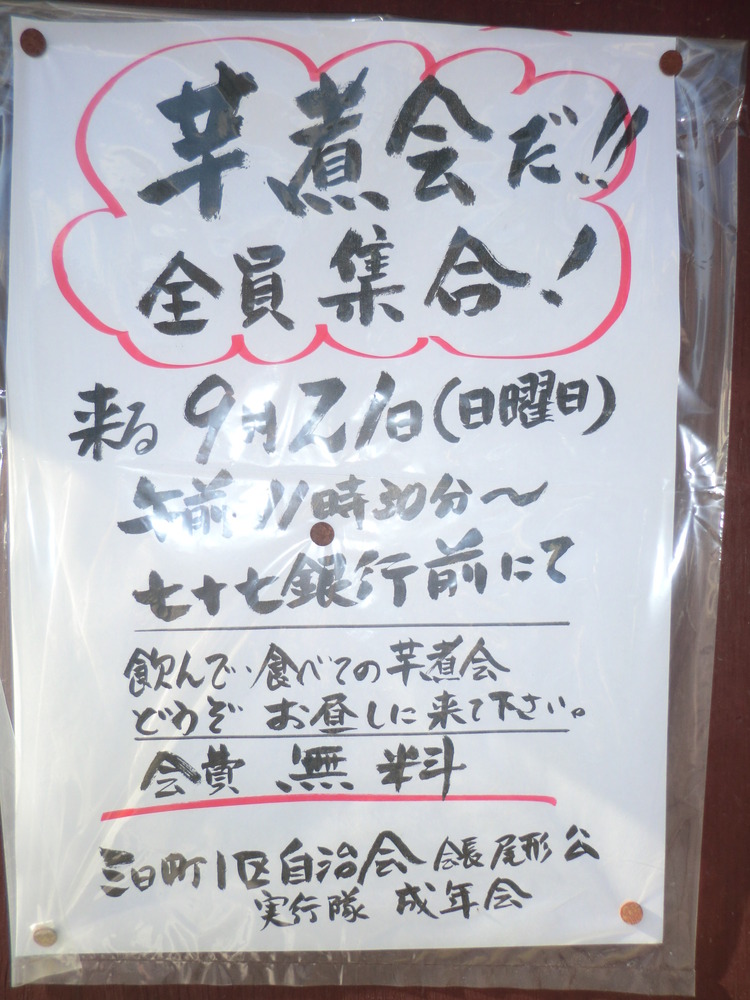 芋煮会だ!!
全員集合!
来る9月21日(日曜日)
午前11時30分〜
七十七銀行前にて
飲んで・食べての芋煮会
どうぞ お昼しに来て下さい。
会費 無料
三日町1区自治会 会長 尾形 公
実行隊 成年会